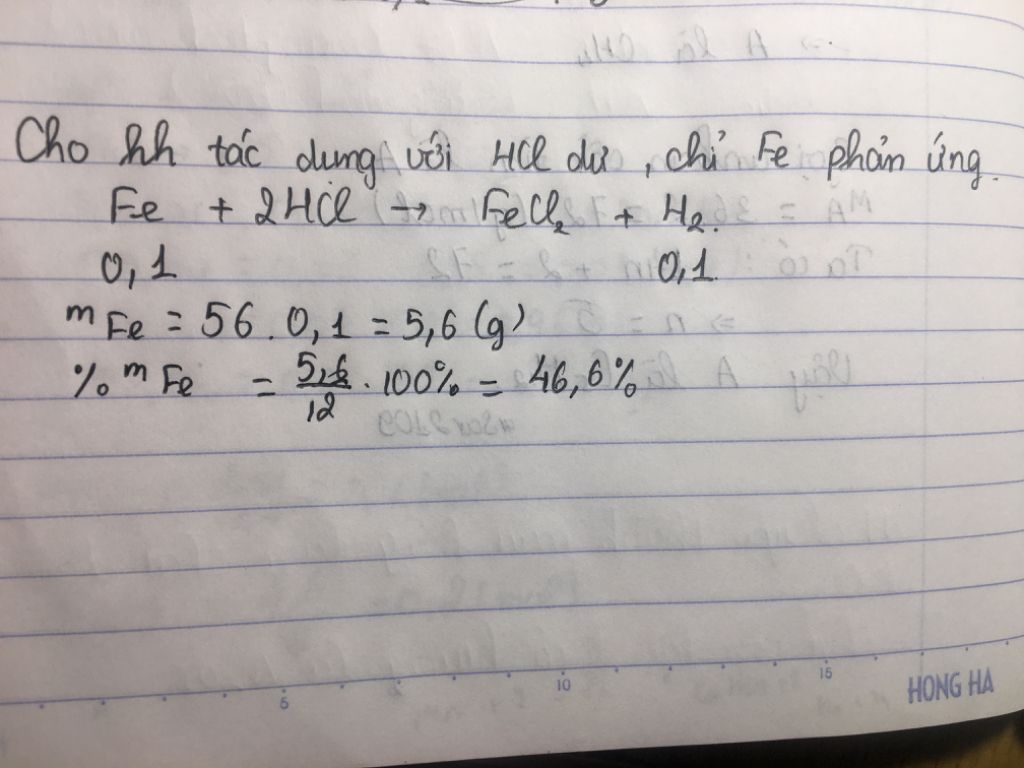 Cho hh tác dụng với HCl dư, chỉ Fe phản ứng.
Fe + 2HCl → FeCl₂ + H₂.
0,1 0,1
mFe = 56 . 0,1 = 5,6 (g)
% mFe = 5,6/12 . 100% = 46,6%
5 10 15
HONG HA